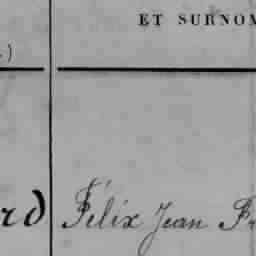 ET SURNOM
.)
rd Félix Jean Fr